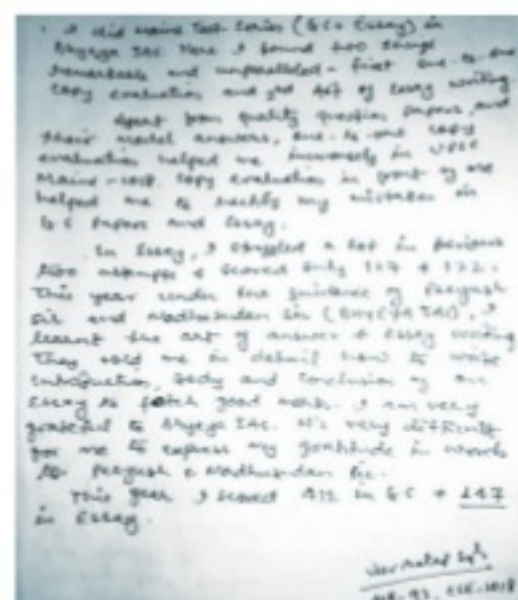 I did Mains Test Series (G.S + Essay) in
Here I found two things
remarkable and unparalleled - first one-to-one
copy evaluation and 2nd Art of Essay writing.
Apart from quality question papers, and
their model answers, one-to-one copy
evaluation helped me immensely in UPSC
Mains - copy evaluation in front of me
helped me to rectify my mistakes in
G.S papers and Essay.
In Essay, I struggled a lot in previous
two attempts & scored only 127 & 122.
This year under the guidance of Peeyush
Sir and Madhusudan Sir
learnt the art of answer & Essay writing
They told me in detail how to write
introduction, body and conclusion of an
Essay to fetch good marks. I am very
grateful to IAS. It's very difficult
for me to express my gratitude in words
to Peeyush & Madhusudan Sir.
This year I scored 412 in G.S &
in Essay.
CSE-2018